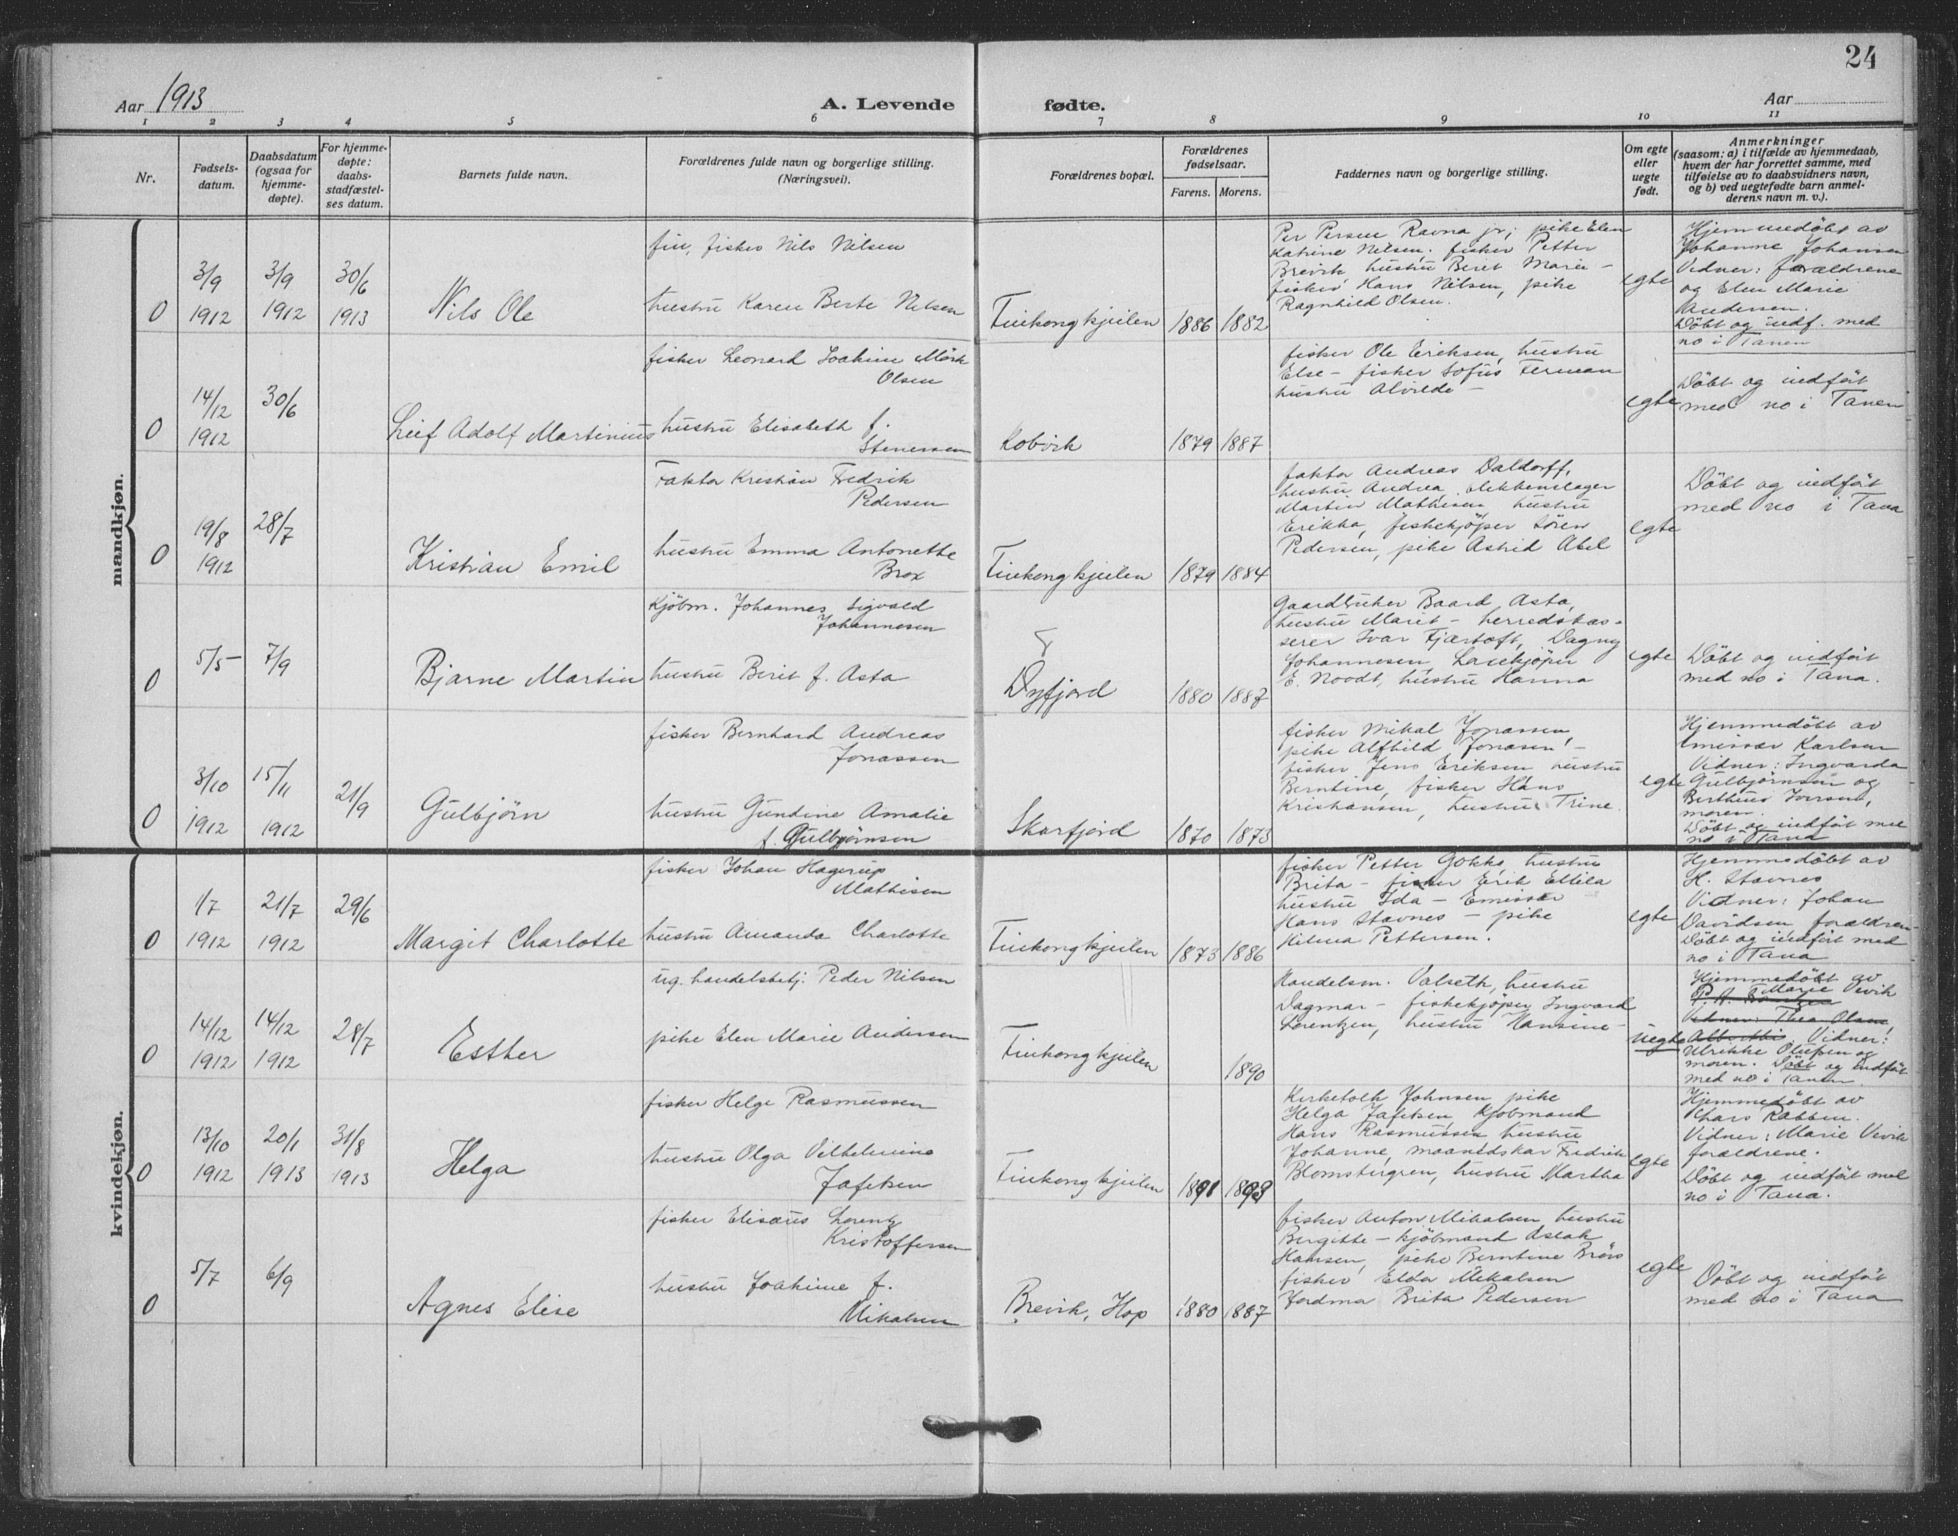 24
Aar 1913
A. Levende
fødte.
Aar
1 2 3 4 5 6 7 8 9 10 11
Nr.
Fødsels-
datum.
Daabsdatum
(ogsaa for
hjemme-
døpte).
For hjemme-
døpte:
daabs-
stadfæstel-
ses datum.
Barnets fulde navn.
Forældrenes fulde navn og borgerlige stilling.
(Næringsvei).
Forældrenes bopæl.
Forældrenes
fødselsaar.
Farens. Morens.
Faddernes navn og borgerlige stilling.
Om egte
eller
uegte
født.
Anmerkninger
(saasom: a) i tilfælde av hjemmedaab,
hvem der har forrettet samme, med
tilføielse av to daabsvidners navn,
og b) ved uegtefødte barn anmel-
derens navn m. v.).
mandkjøn.
0
3/9
1912
3/9
1912
30/6
1913
Nils Ole
fin, fisker Nils Nilsen
hustru Karen Berte Nilsen
Finkongkjeilen
1886 1882
Per Persen Ravna jr; pike Elen
Katrine Nilsen; fisker Petter
Brevik hustru Beret Marie –
fisker Hans Nilsen, pike
Ragnhild Olsen.
egte
Hjemmedöbt av
Johanne Johansen
Vidner: forældrene
og Elen Marie
Andersen.
Döbt og indf. med
no i Tanen
0
14/12
1912
30/6
Leif Adolf Martinius
fisker Leonard Joakim Mörk
Olsen
hustru Elisabeth f.
Stenersen
Kobvik
1879 1887
fisker Ole Eriksen, hustru
Else – fisker Sofus Ferman
hustru Alvilde –
egte
Döbt og indfört
med no i Tanen
0
19/8
1912
28/7
Kristian Emil
Faktor Kristian Fredrik
Pedersen
hustru Emma Antonette
Brox
Finkongkjeilen
1879 1884
faktor Andreas Daldorff,
hustru Andrea, blikkenslager
Martin Mathisen, hustru
Erikka, fiskekjöper Sören
Pedersen, pike Astrid Abel
egte
Döbt og indfört
med no i Tana
0
5/5
7/9
Bjarne Martin
Kjöbm. Johannes Sigvald
Johannesen
hustru Berit f. Asta
Dyfjord
1880 1887
Gaardbruker Baard Asta,
hustru Marit – herredskas-
serer Ivar Fjærtoft, Dagny
Johannesen,
E. Noodt, hustru Hanna
egte
Döbt og indfört
med no i Tana.
0
3/10
1912
15/11
1912
21/9
Gulbjørn
fisker Bernhard Andreas
Jonassen
hustru Gundine Amalie
f. Gulbjørnsen
Skarfjord
1870 1873
fisker Mikal Jonassen,
pike Alfhild Jonasen –
fisker Jens Eriksen hustru
Berntine, fisker Hans
Kristiansen, hustru Trine.
egte
Hjemmedöbt av
emissær Karlsen
Vidner: Ingvarda
Gulbjørnsen og
Bertheus Iversen,
moren.
Döbt og indfört med
no i Tana
kvindekjøn.
0
1/7
1912
21/7
1912
29/6
Margit Charlotte
fisker Johan Hagerup
Mathisen
hustru Amanda Charlotte
Finkongkjeilen
1873 1886
fisker Petter Gokko, hustru
Brita – fisker Erik Ettila
hustru Ida – Emissær
Hans Stavnes – pike
Hilma Pettersen.
egte
Hjemmedöbt av
H. Stavnes
Vidner: Johan
Davidsen forældren-
Döbt og indfört med
no i Tana
0
14/12
1912
14/12
1912
28/7
Esther
ug. handelsbetj. Peder Nilsen
pike Elen Marie Andersen
Finkongkjeilen
1890
Handelsm. Valseth, hustru
Dagmar – fiskekjöper Ingvard
Lorentzen, hustru Hansine –
uegte
Hjemmedöbt av
Marie Vevik
Vidner: Thea Olsen
Vidner:
Ulrikke Olufsen og
moren. Döbt og indfört
med no i Tanen
0
13/10
1912
20/1
1913
31/8
1913
Helga
fisker Helge Rasmussen
hustru Olga Vilhelmine
Jafetsen
Finkongkjeilen
1891 1893
Kirketolk Johnsen pike
Helga Jafetsen Kjöbmand
Hans Rasmussen hustru
Johanne, maanedskar Fredrik
Blomstergren, hustru Martha
egte
Hjemmedöbt av
Lars Rabben.
Vidner: Marie Vevik
forældrene.
Döbt og indfört med
no i Tana.
0
5/7
6/9
Agnes Elise
fisker Elisæus Lorentz
Kristoffersen
hustru Joakime f.
Mikalsen
Brevik, Hop
1880 1887
fisker Anton Mikalsen hustru
Birgitte – kjöbmand Aslak
Hansen, pike Berntine Brös
fisker Elda Mikalsen
Jordma Brita Pedersen
egte
Döbt og indfört
med no i Tana